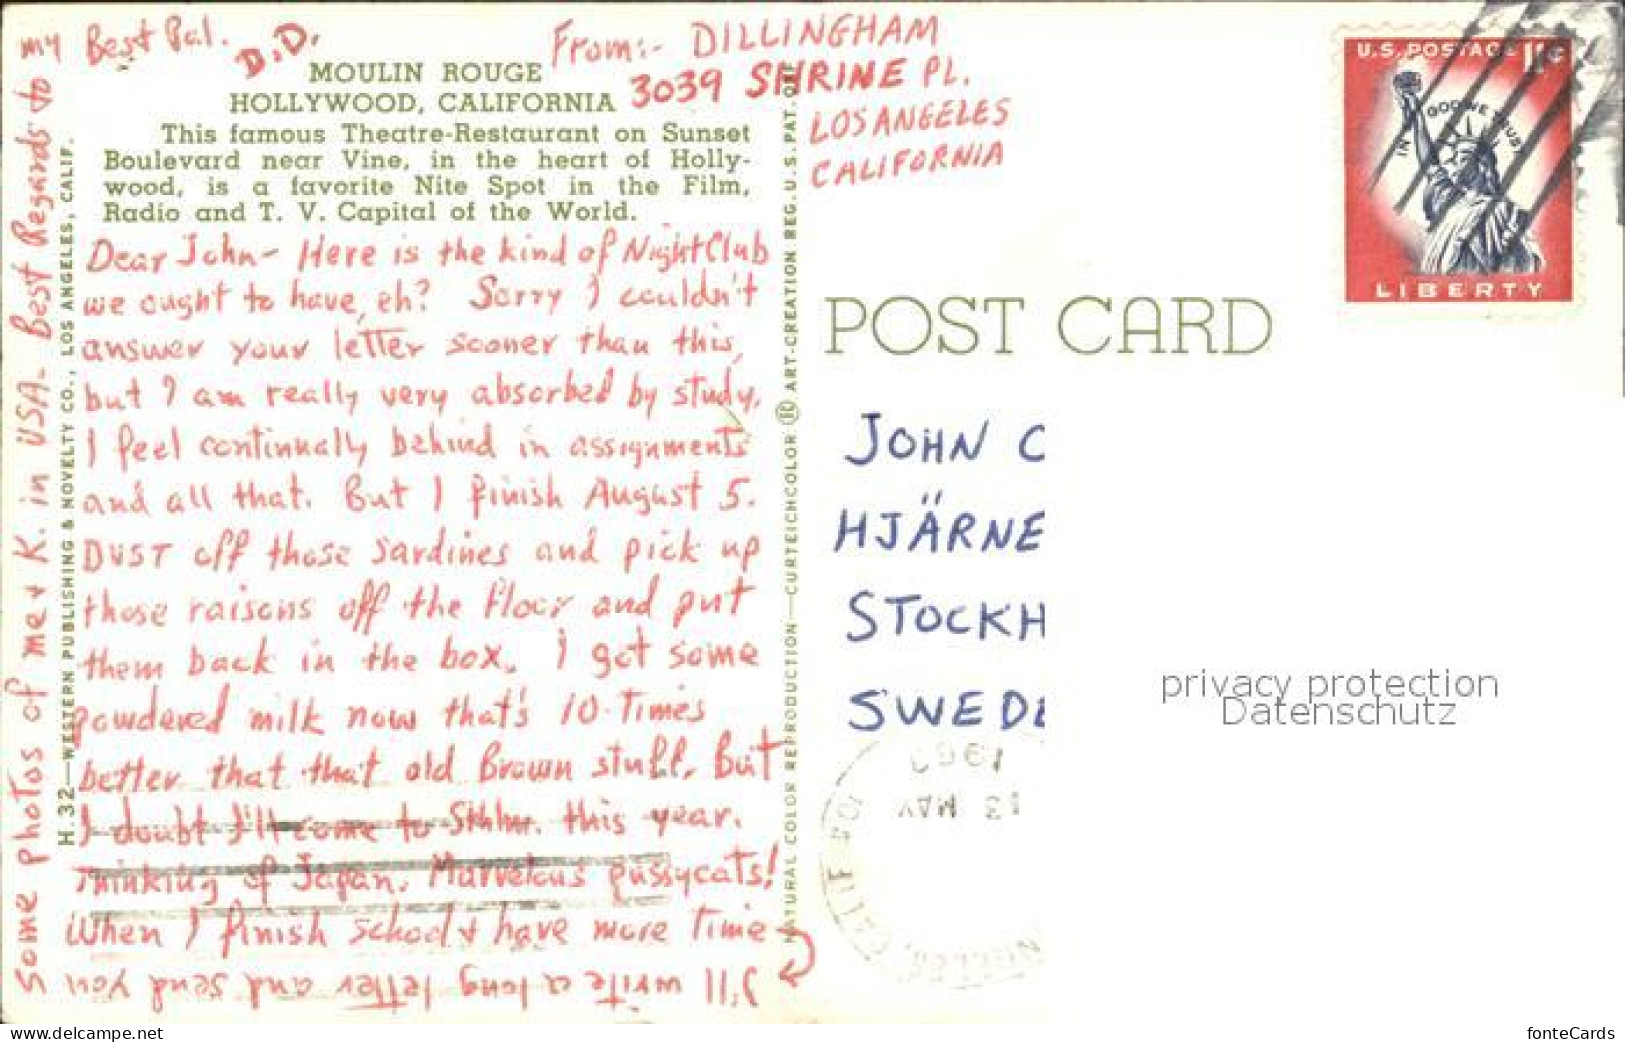 From:- DILLINGHAM
3039 SHRINE PL.
LOS ANGELES
CALIFORNIA
U.S. POSTAGE 11¢
IN GOD WE TRUST
LIBERTY
MOULIN ROUGE
HOLLYWOOD, CALIFORNIA
This famous Theatre-Restaurant on Sunset
Boulevard near Vine, in the heart of Holly-
wood, is a favorite Nite Spot in the Film,
Radio and T. V. Capital of the World.
Dear John- Here is the kind of Night Club
we ought to have, eh? Sorry I couldn't
answer your letter sooner than this,
but I am really very absorbed by study.
I feel continually behind in assignments
and all that. But I finish August 5.
DUST off those sardines and pick up
those raisons off the floor and put
them back in the box. I got some
powdered milk now that's 10-Times
better that that old Brown stuff. But
I doubt I'll come to Sthlm. this year.
Thinking of Japan. Marvelous pussycats!
When I finish school & have more Time
I'll write a long letter and send you
some photos of me & K. in USA- Best Regards to
my Best Pal.
D.D.
H.32—WESTERN PUBLISHING & NOVELTY CO., LOS ANGELES, CALIF.
NATURAL COLOR REPRODUCTION—CURTEICHCOLOR ® ART-CREATION REG. U.S. PAT. OFF.
POST CARD
JOHN C
HJÄRNE
STOCKH
SWEDE
13 MAY
CALIF
privacy protection
Datenschutz
www.delcampe.net
fonteCards